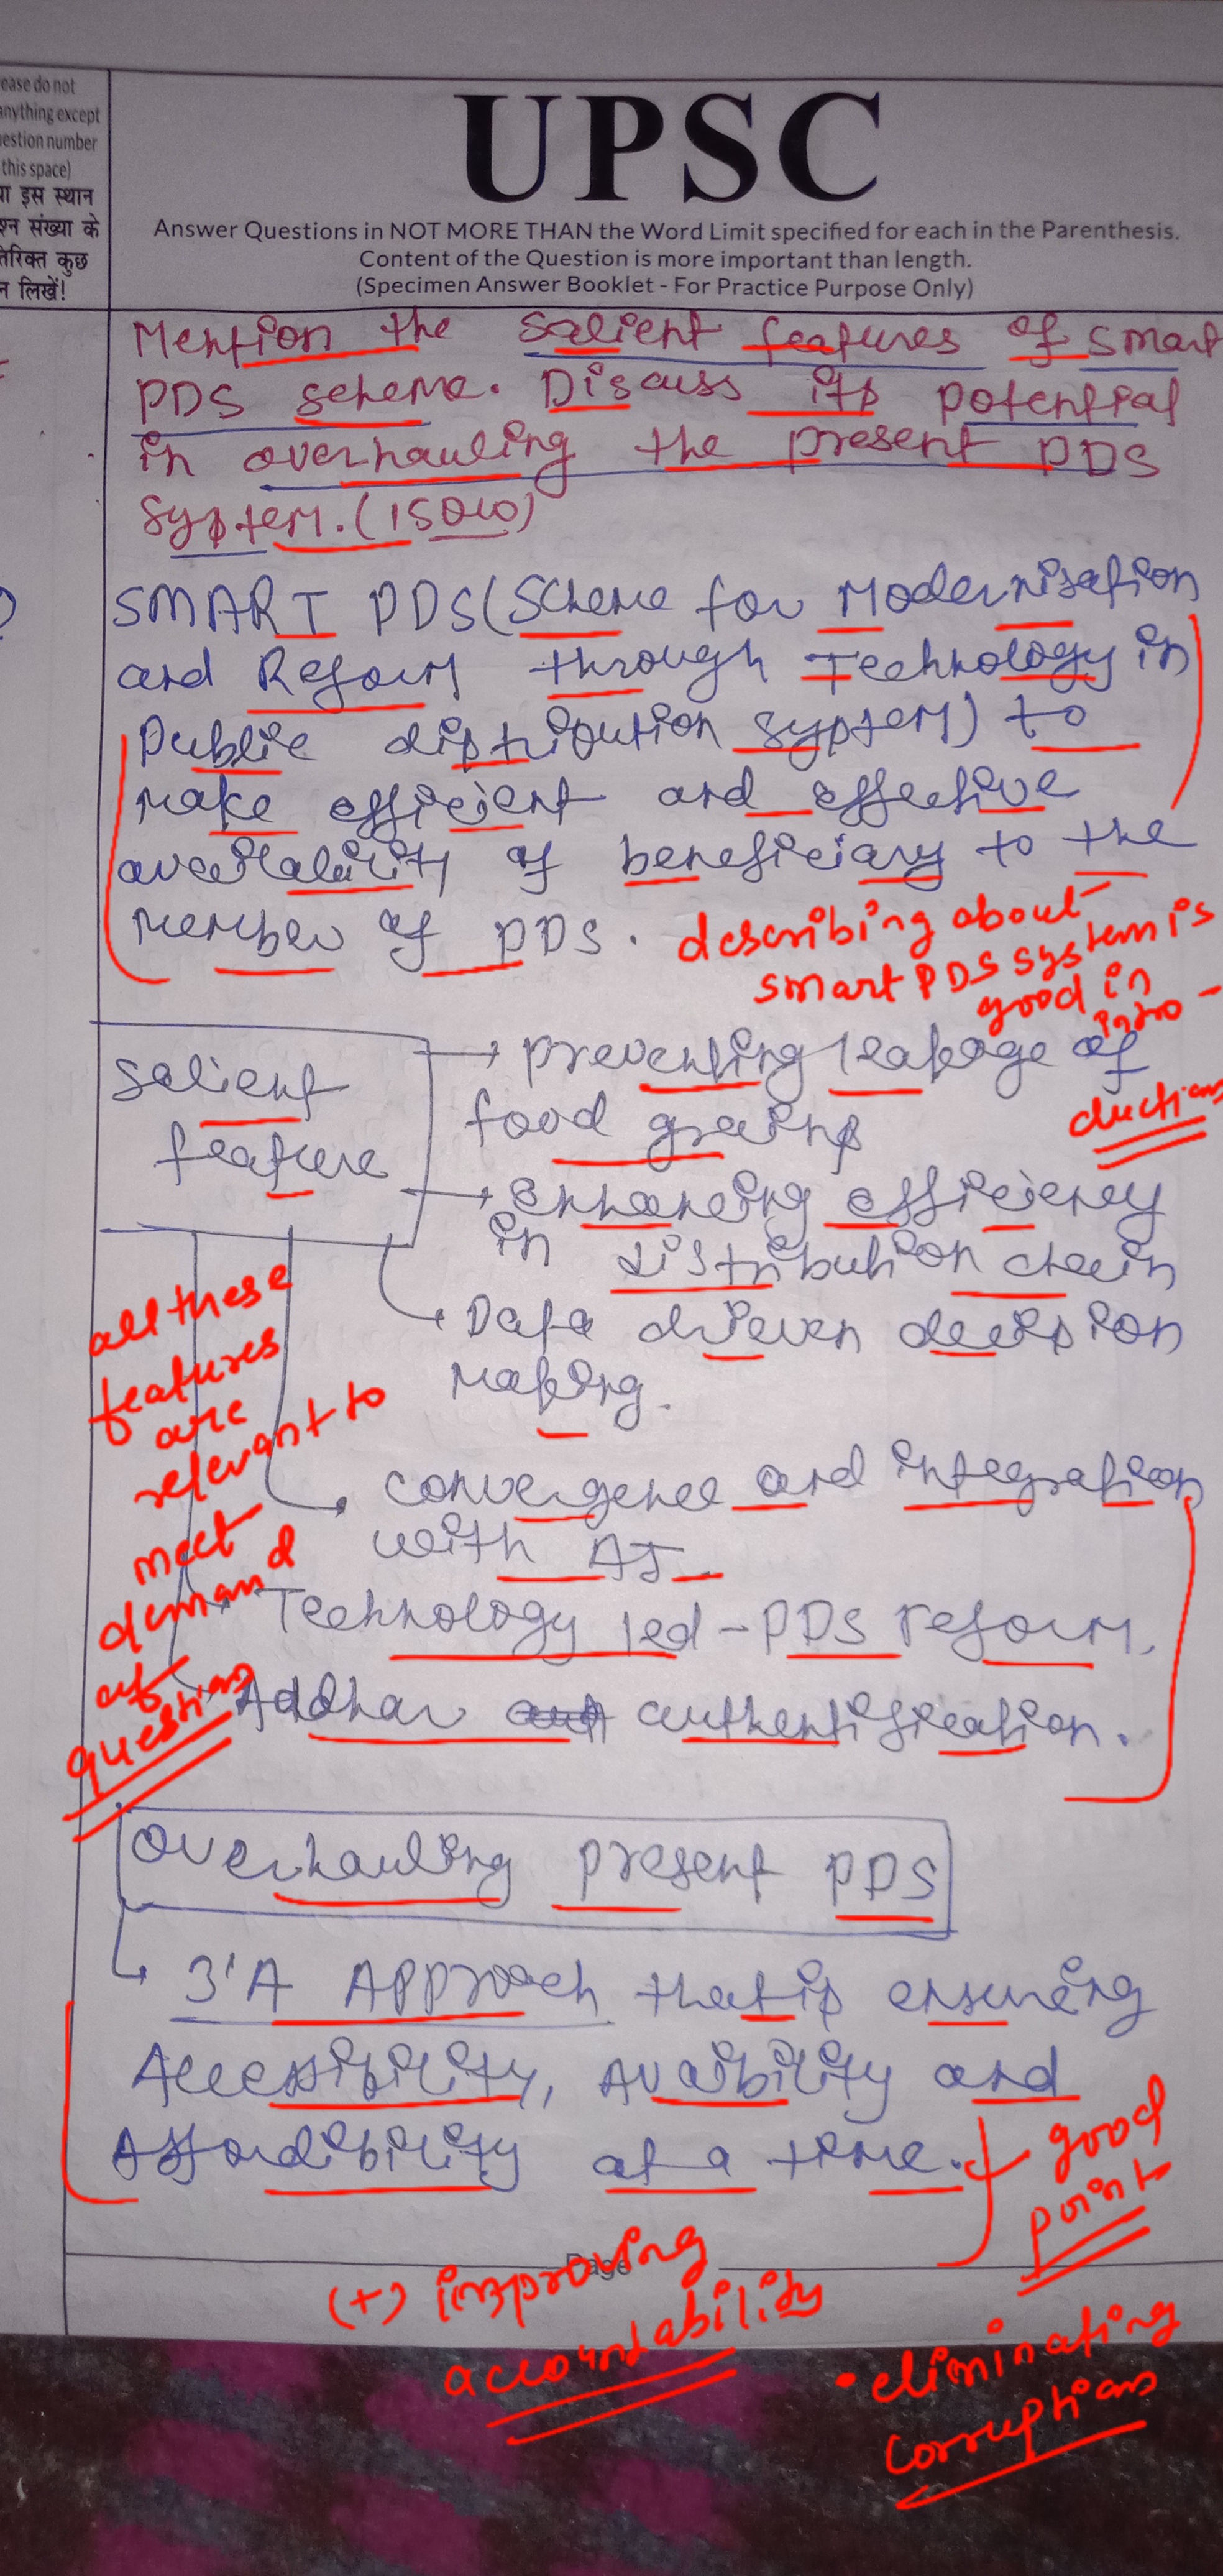 ease do not
anything except
estion number
this space)
या इस स्थान
श्न संख्या के
तिरिक्त कुछ
न लिखें!
UPSC
Answer Questions in NOT MORE THAN the Word Limit specified for each in the Parenthesis.
Content of the Question is more important than length.
(Specimen Answer Booklet - For Practice Purpose Only)
Mention the salient features of smart
PDS scheme. Discuss its potential
in overhauling the present PDS
system. (150w)
SMART PDS (Scheme for Modernisation
and Reform through Technology in
Public distribution system) to
make efficient and effective
availability of beneficiary to the
member of PDS.
describing about
smart PDS system is
good in
intro-
duction
Salient
feature
→ preventing leakage of
food grains
→ Enhancing efficiency
in distribution chain
→ Data driven decision
making.
all these
features
are
relevant to
meet
demand
of
question
→ convergence and integration
with AI
→ Technology led-PDS reform.
Addhar authentification.
Overhauling present PDS
→ 3'A Approach that is ensuring
Accessibility, Avaibility and
Affordibility at a time.
good
point
Page
(+) improving
accountability
• eliminating
corruptions